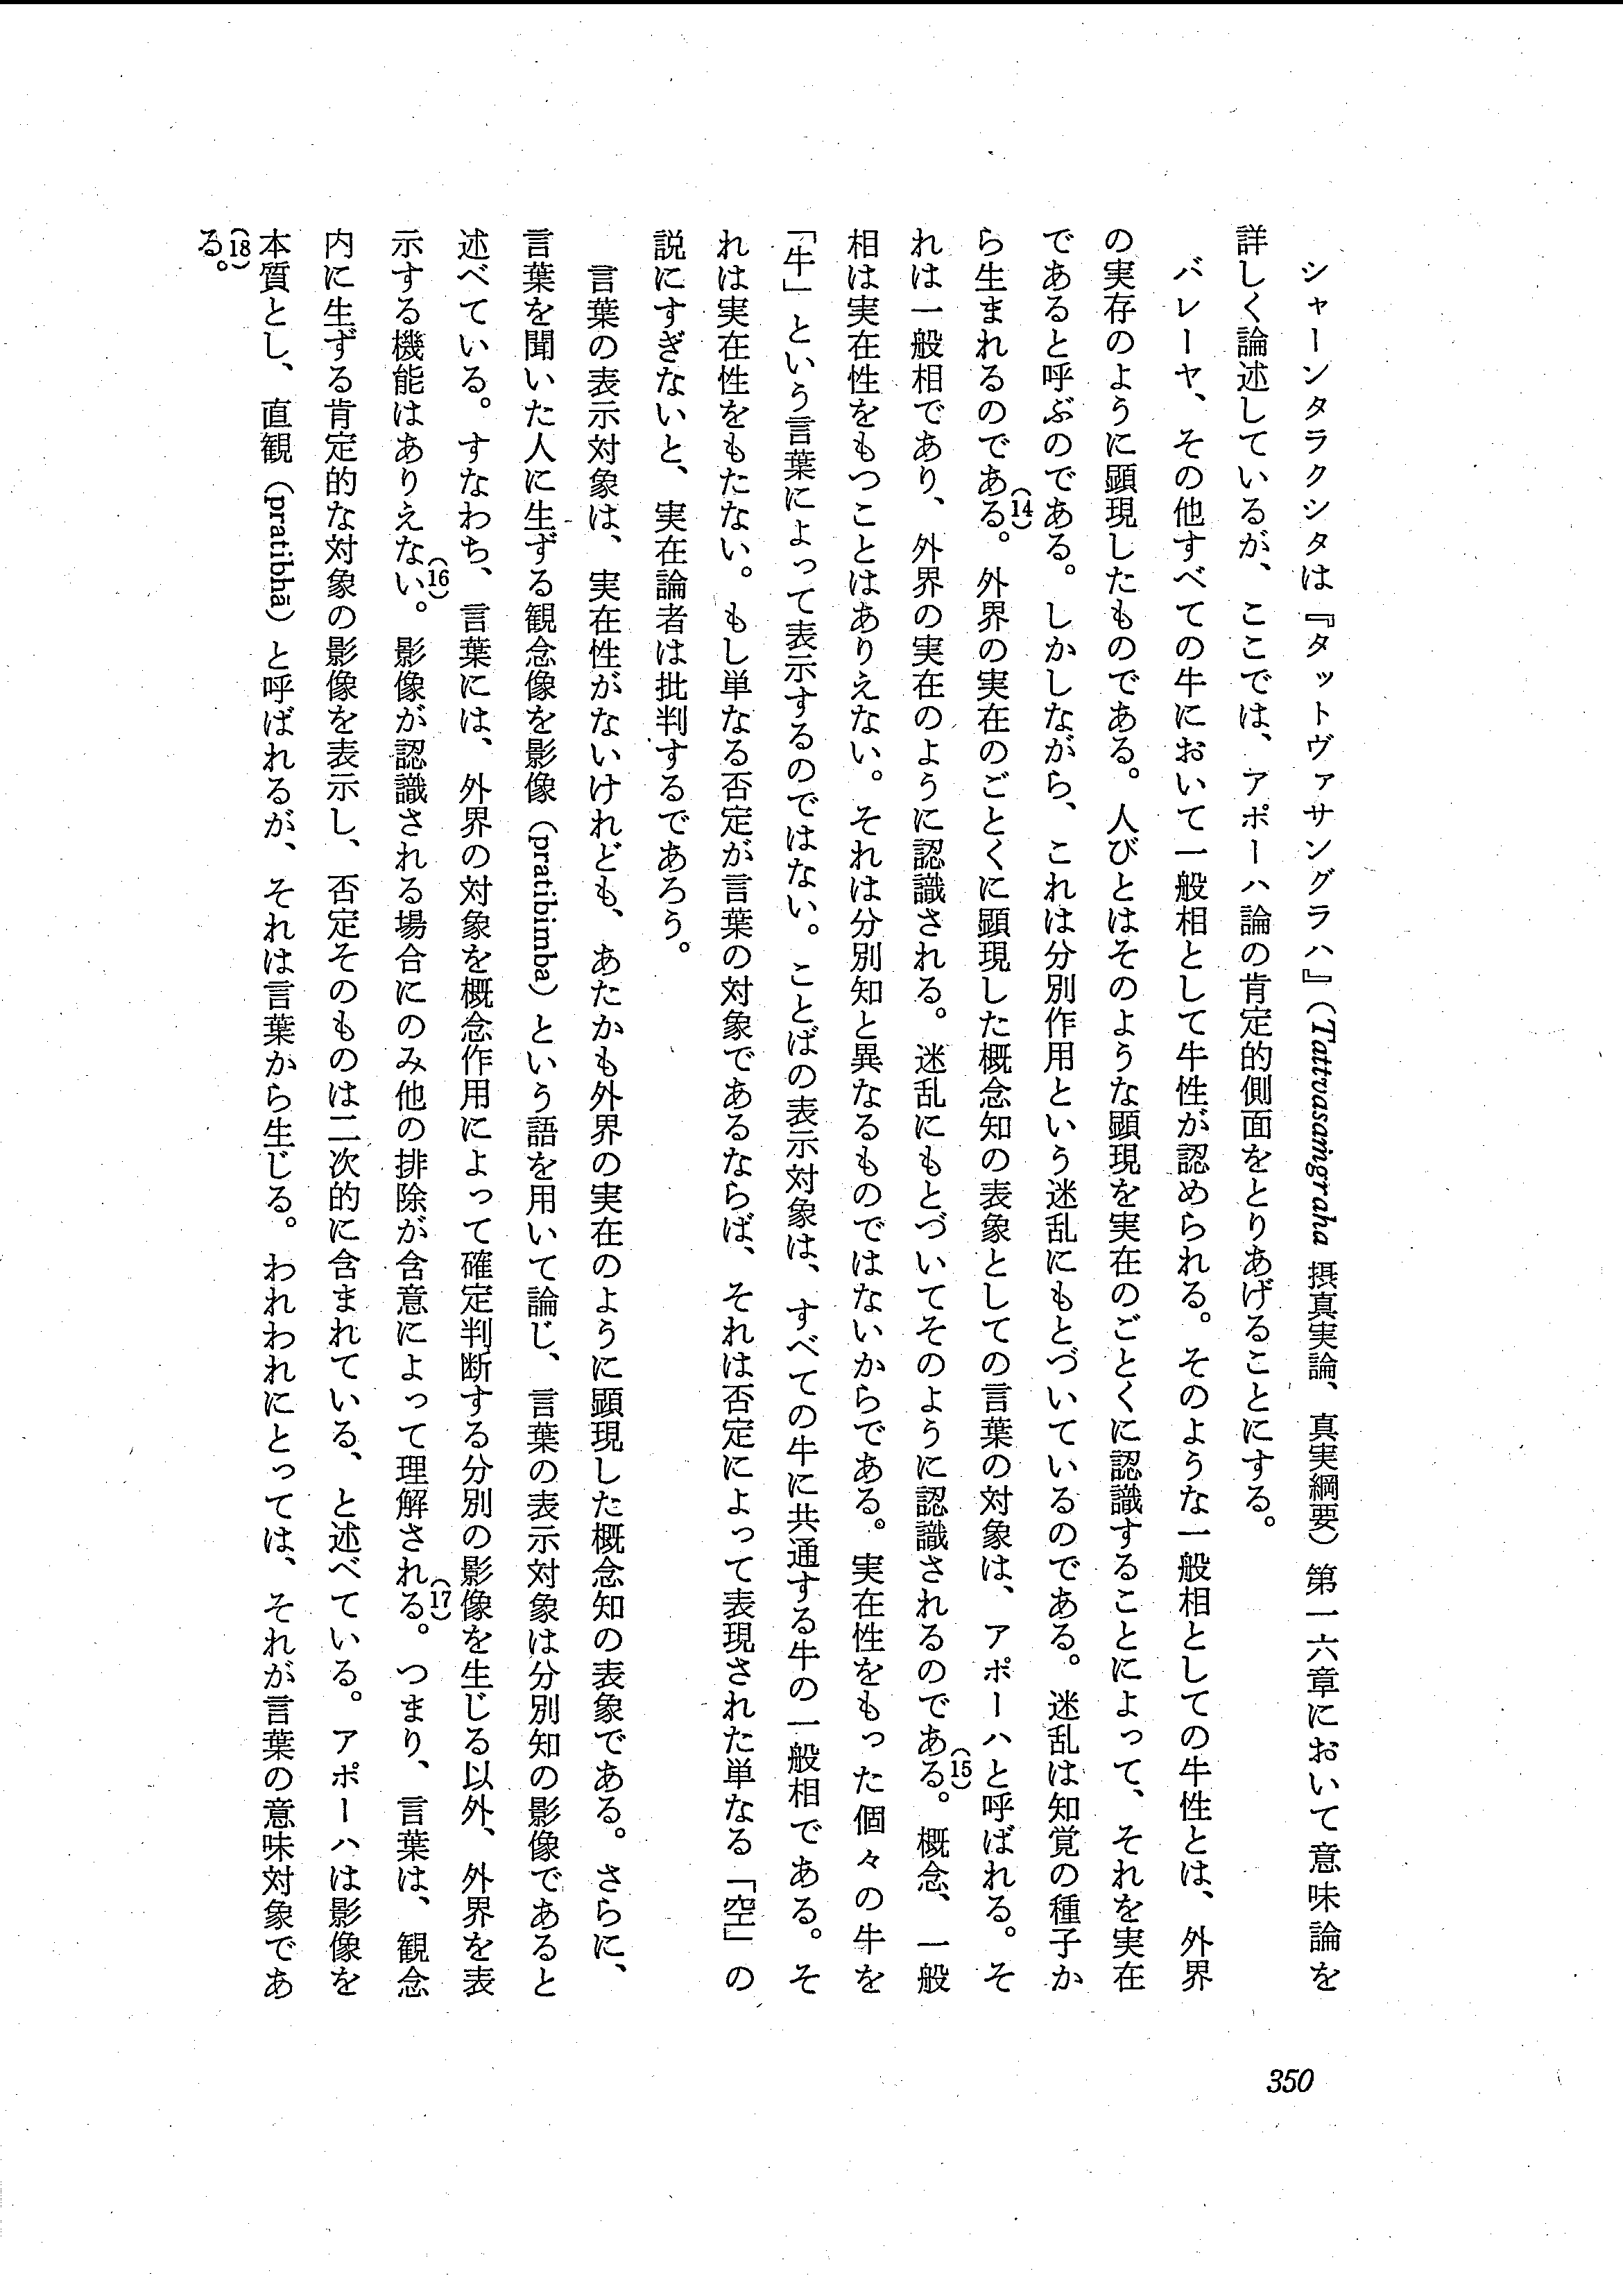 シャーンタラクシタは『タットヴァサングラハ』(Tattvasaṁgraha 摂真実論、真実綱要)第一六章において意味論を
詳しく論述しているが、ここでは、アポーハ論の肯定的側面をとりあげることにする。
バレーヤ、その他すべての牛において一般相として牛性が認められる。そのような一般相としての牛性とは、外界
の実存のように顕現したものである。人びとはそのような顕現を実在のごとくに認識することによって、それを実在
であると呼ぶのである。しかしながら、これは分別作用という迷乱にもとづいているのである。迷乱は知覚の種子か
ら生まれるのである(14)。外界の実在のごとくに顕現した概念知の表象としての言葉の対象は、アポーハと呼ばれる。そ
れは一般相であり、外界の実在のように認識される。迷乱にもとづいてそのように認識されるのである(15)。概念、一般
相は実在性をもつことはありえない。それは分別知と異なるものではないからである。実在性をもった個々の牛を
「牛」という言葉によって表示するのではない。ことばの表示対象は、すべての牛に共通する牛の一般相である。そ
れは実在性をもたない。もし単なる否定が言葉の対象であるならば、それは否定によって表現された単なる「空」の
説にすぎないと、実在論者は批判するであろう。
言葉の表示対象は、実在性がないけれども、あたかも外界の実在のように顕現した概念知の表象である。さらに、
言葉を聞いた人に生ずる観念像を影像(pratibimba)という語を用いて論じ、言葉の表示対象は分別知の影像であると
述べている。すなわち、言葉には、外界の対象を概念作用によって確定判断する分別の影像を生じる以外、外界を表
示する機能はありえない(16)。影像が認識される場合にのみ他の排除が含意によって理解される(17)。つまり、言葉は、観念
内に生ずる肯定的な対象の影像を表示し、否定そのものは二次的に含まれている、と述べている。アポーハは影像を
本質とし、直観(pratibhā)と呼ばれるが、それは言葉から生じる。われわれにとっては、それが言葉の意味対象であ
る(18)。
350